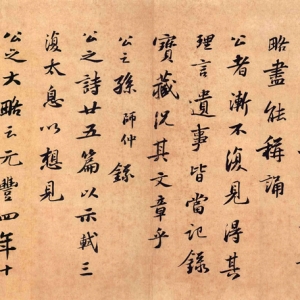 略盡能稱誦
公者漸不復見得其
理言遺事皆當記錄
寶藏況其文章乎
公之孫師仲錄
公之詩廿五篇以示軾三
復太息以想見
公之大略云元豐四年十